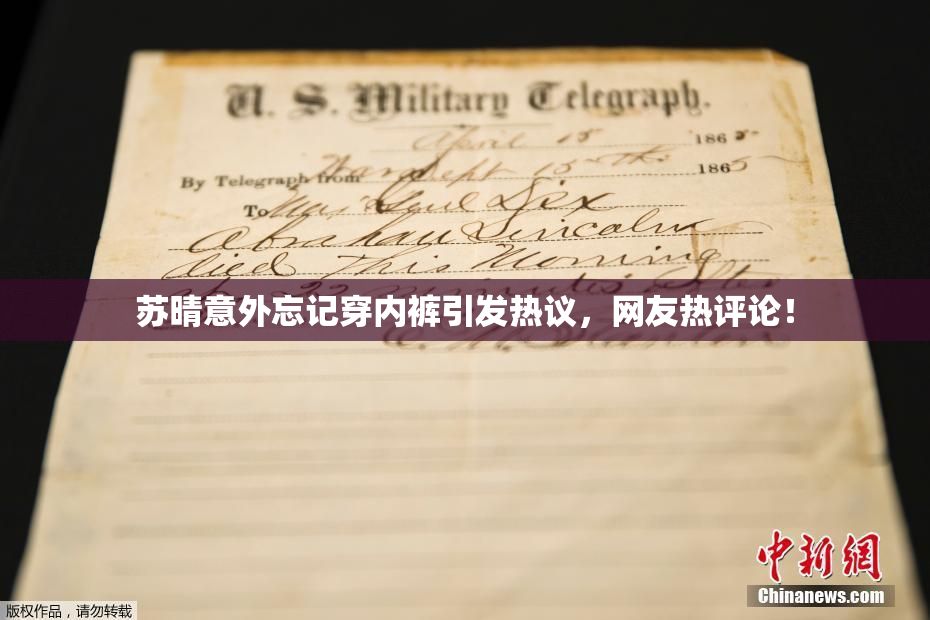 U. S. Military Telegraph.
April 15 1865
By Telegraph from War Dept 15th 1865
To Maj Genl Dix
Abraham Lincoln
died This Morning
at 22 minutes after
苏晴意外忘记穿内裤引发热议，网友热评论！
E. M. Stanton
中新网
Chinanews.com
版权作品，请勿转载